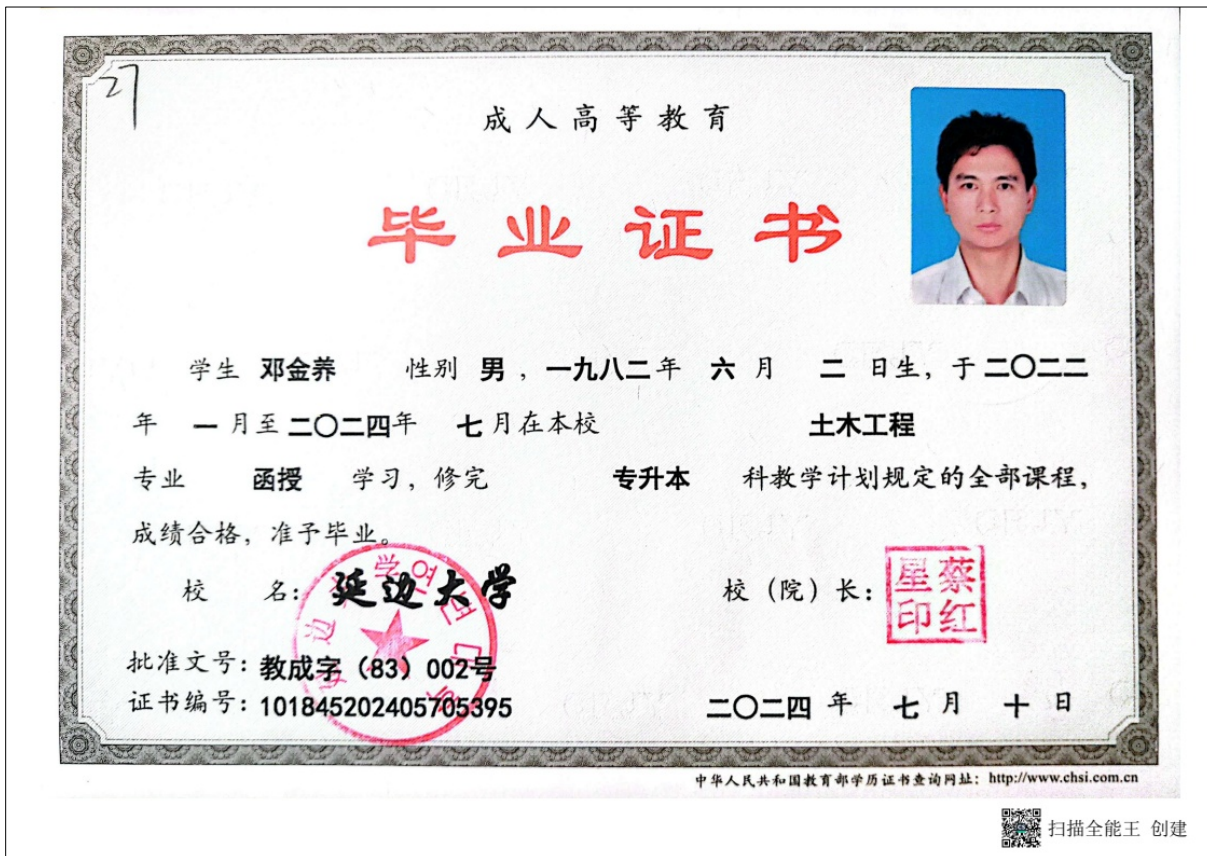 27
成人高等教育
毕业证书
学生 邓金养 性别 男 ，一九八二年 六 月 二 日生，于 二〇二二
年 一 月至 二〇二四年 七 月在本校 土木工程
专业 函授 学习，修完 专升本 科教学计划规定的全部课程，
成绩合格，准予毕业。
校 名：延边大学 校（院）长：
延边大学 연변대학
蔡红星印
批准文号：教成字（83）002号
证书编号：101845202405705395 二〇二四 年 七 月 十 日
中华人民共和国教育部学历证书查询网址：http://www.chsi.com.cn
扫描全能王 创建